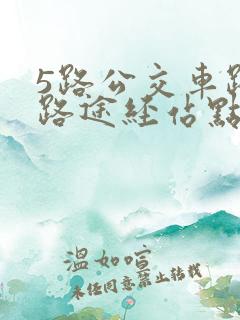 5路公交車路
路途经佔點
溫如喧
未经同意禁止转载